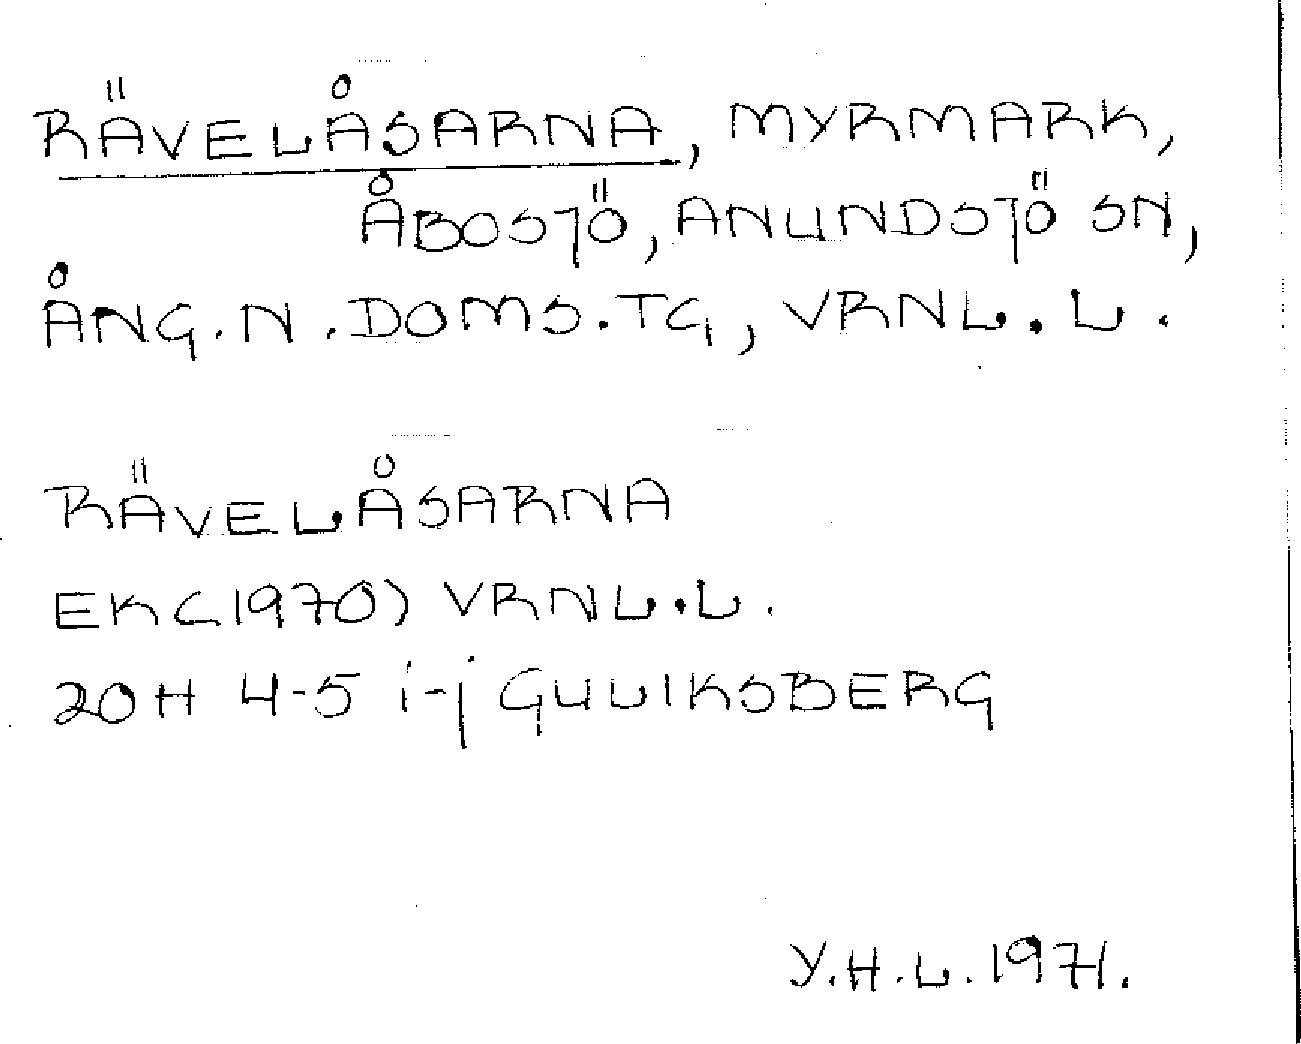 RÄVELÅSARNA, MYRMARK,
ÅBOSJÖ, ANUNDSJÖ SN,
ÅNG. N. DOMS. TG, VRNL. L.
RÄVELÅSARNA
EK (1970) VRNL. L.
20H 4-5 i-j GULIKSBERG
Y.H.L. 1971.